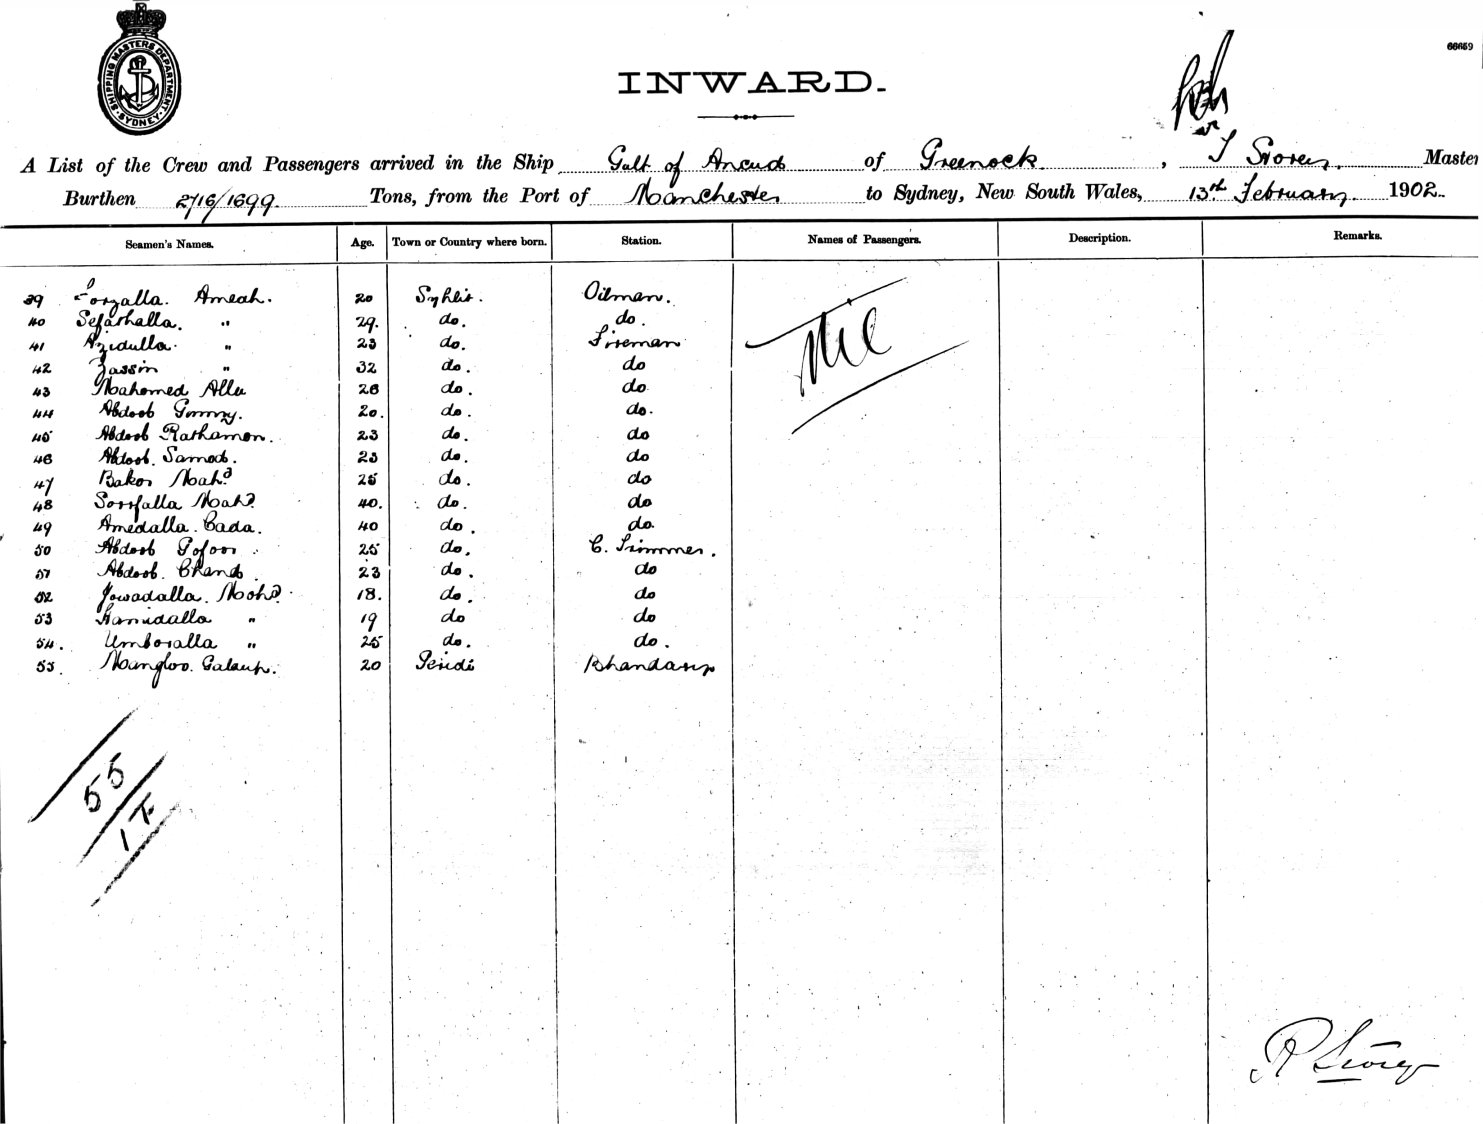 SHIPPING MASTERS DEPARTMENT. SYDNEY.
66659
INWARD.
A List of the Crew and Passengers arrived in the Ship Gulf of Ancud of Greenock, Storey. Master
Burthen 2716/1699 Tons, from the Port of Manchester to Sydney, New South Wales, 13th February. 1902.
Seamen's Names. Age. Town or Country where born. Station. Names of Passengers. Description. Remarks.
39 Forzalla. Ameah. 20 Syhlit. Oilman. Nil
40 Sefathalla. " 29. do. do.
41 Azidulla. " 23 do. Fireman
42 Zassin " 32 do. do
43 Mahomed Allu 26 do. do
44 Abdoob Gommy. 20. do. do.
45 Abdoob Rathamon. 23 do. do
46 Abdoob. Samod. 23 do. do
47 Bakor Mahd 25 do. do
48 Sorrfalla Mahd. 40. do. do
49 Amedalla. Cada. 40 do. do.
50 Abdoob Gofoor 25 do. C. Trimmer.
51 Abdoob. Chand. 23 do. do
52 Jowadalla. Mohd. 18. do. do
53 Hamidalla " 19 do do
54. Umboralla " 25 do. do.
55. Mangloo. 20 Bhandary
55
1 T.
R Storey